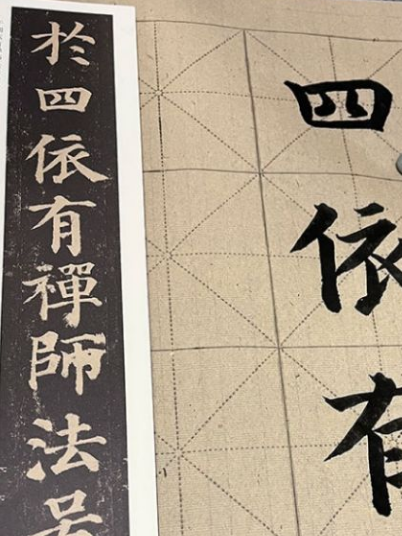 於四依有禪師法
四依有